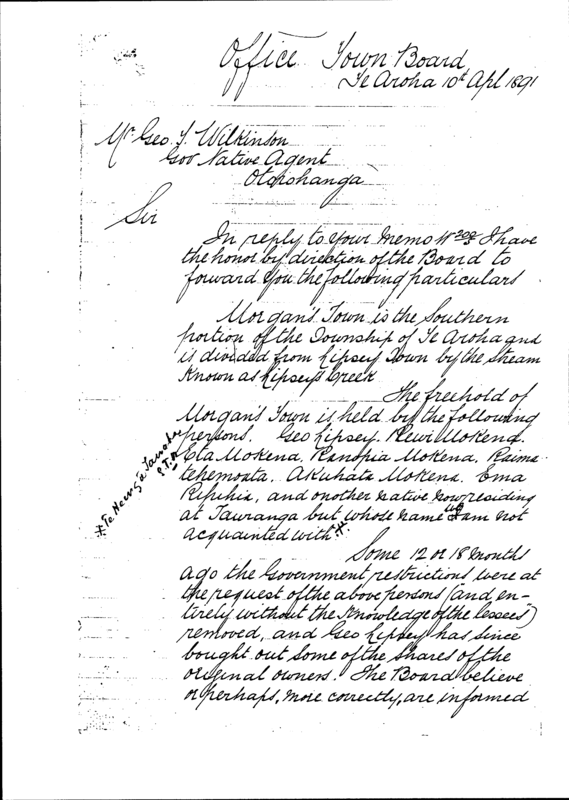 Office Town Board
Te Aroha 10th Apl 1891
Mr Geo. T. Wilkinson
Gov Native Agent
Otorohanga
Sir
In reply to your memo I have
the honor by direction of the Board to
forward you the following particulars
Morgan's Town is the Southern
portion of the Township of Te Aroha and
is divided from Lipsey Town by the Stream
Known as Lipsey's Creek
The freehold of
Morgan's Town is held by the following
persons. Geo Lipsey. Rewi Mokena.
Eta Mokena, Ranapia Mokena, Raima
tehemoata. Akuhata Mokena. Ema
and another native now residing
at Tauranga but whose name we am not
acquainted with. x
x Te
Some 12 or 18 months
ago the Government restrictions were at
the request of the above persons (and en-
tirely without the Knowledge of the lessees)
removed, and Geo Lipsey has since
bought out some of the shares of the
original owners. The Board believe
or perhaps, more correctly, are informed